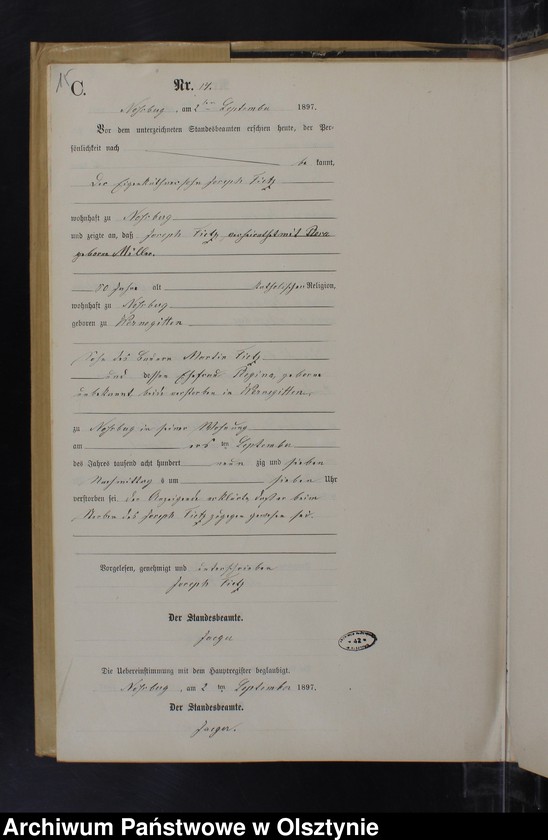 15
C.
Nr. 14.
Nossberg, am 2ten September 1897.
Vor dem unterzeichneten Standesbeamten erschien heute, der Per-
sönlichkeit nach
be kannt,
der Eigenkäthnersohn Joseph Tietz
wohnhaft zu Nossberg
und zeigte an, daß Joseph Tietz, verheirathet mit Rosa
geborne Müller.
80 Jahre alt katholischen Religion,
wohnhaft zu Nossberg
geboren zu Wernegitten
Sohn des Bauern Martin Tietz
und dessen Ehefrau Regina, geborne
unbekannt beide verstorben in Wernegitten
zu Nossberg in seiner Wohnung
am ersten September
des Jahres tausend acht hundert neun zig und sieben
Nachmittag s um sieben Uhr
verstorben sei. Der Anzeigende erklärte, daß er beim
Sterben des Joseph Tietz zugegen gewesen sei.
Vorgelesen, genehmigt und unterschrieben
Joseph Tietz
Der Standesbeamte.
Jaeger
* 42 *
Die Uebereinstimmung mit dem Hauptregister beglaubigt.
Nossberg, am 2 ten September 1897.
Der Standesbeamte.
Jaeger.
Archiwum Państwowe w Olsztynie